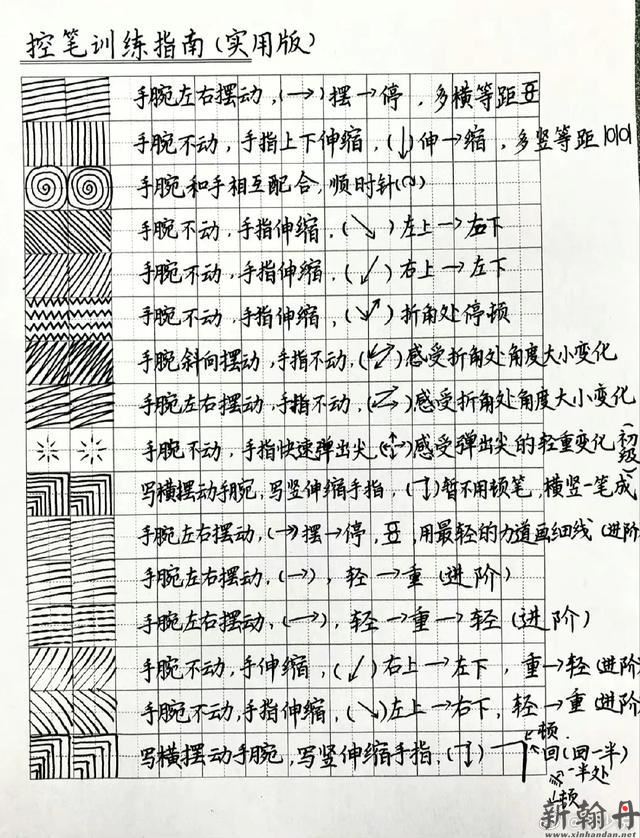 控笔训练指南(实用版)
手腕左右摆动,(→)摆→停,多横等距
手腕不动,手指上下伸缩,(↓)伸→缩,多竖等距
手腕和手相互配合,顺时针(↷)
手腕不动,手指伸缩,(↘)左上→右下
手腕不动,手指伸缩,(↙)右上→左下
手腕不动,手指伸缩,(↘↗)折角处停顿
手腕斜向摆动,手指不动,感受折角处角度大小变化
手腕左右摆动,手指不动,感受折角处角度大小变化
手腕不动,手指快速弹出尖,感受弹出尖的轻重变化(初级)
写横摆动手腕,写竖伸缩手指,(┐)暂不用顿笔,横竖一笔成
手腕左右摆动,(→)摆→停,用最轻的力道画细线(进阶
手腕左右摆动,(→),轻→重(进阶)
手腕左右摆动,(→),轻→重→轻(进阶)
手腕不动,手伸缩,(↙)右上→左下,重→轻(进阶)
手腕不动,手指伸缩,(↘)左上→右下,轻→重(进阶
写横摆动手腕,写竖伸缩手指,(┐)
顿
回(回一半)
一半处
顿
新翰丹
www.xinhandan.net